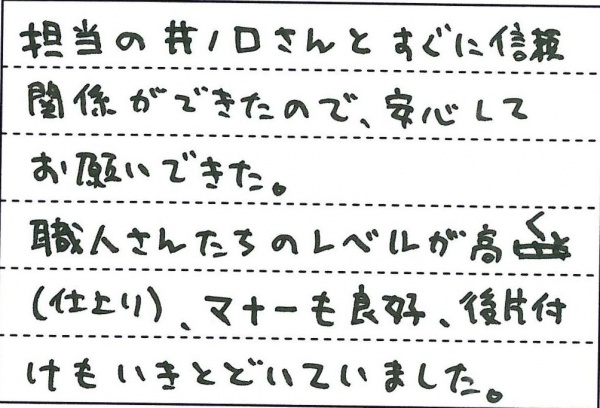 担当の井ノ口さんとすぐに信頼
関係ができたので、安心して
お願いできた。
職人さんたちのレベルが高く
(仕上り)、マナーも良好、後片付
けもいきとどいていました。